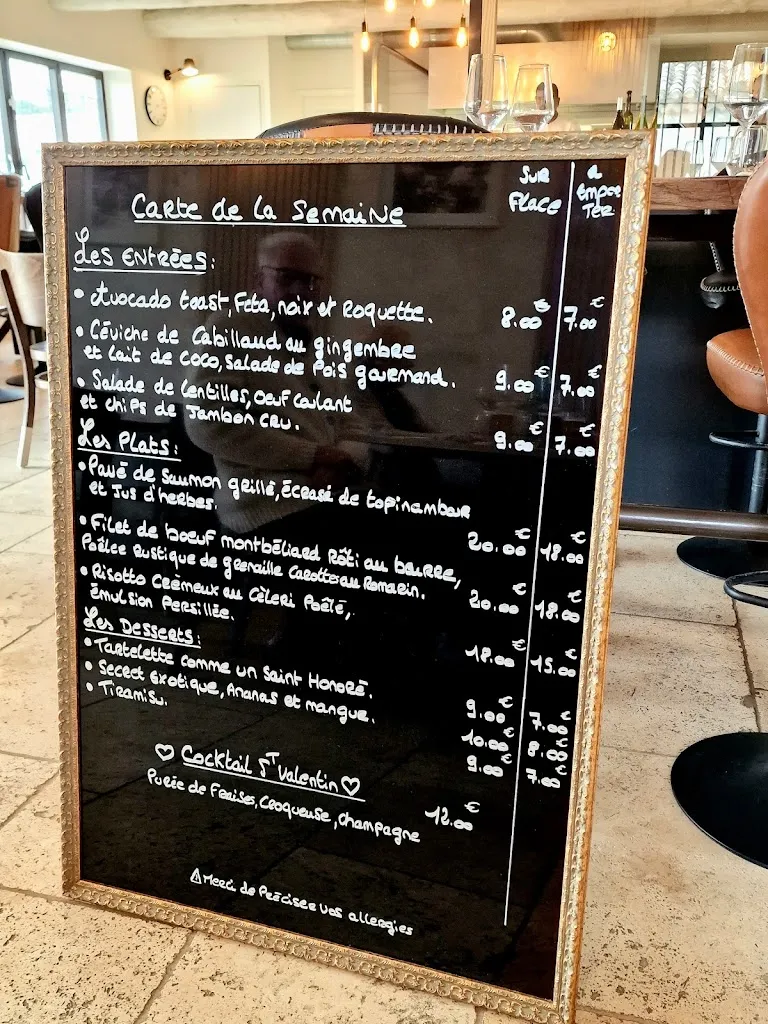 Sur Place
à Emporter
Carte de la Semaine
Les Entrées:
• Avocado toast, Feta, noix et Roquette. 8.00€ 7.00€
• Céviche de Cabillaud au gingembre
et lait de coco, Salade de Pois gourmand. 9.00€ 7.00€
• Salade de lentilles, oeuf coulant
et chips de Jambon cru. 9.00€ 7.00€
Les Plats:
• Pavé de Saumon grillé, Écrasé de topinambour
et Jus d'herbes. 20.00€ 18.00€
• Filet de boeuf montbéliard Rôti au beurre,
Poêlée Rustique de grenaille Carotte au Romarin. 20.00€ 18.00€
• Risotto Crèmeux au Cèleri Poêlé,
émulsion Persillée. 18.00€ 15.00€
Les Desserts:
• Tartelette comme un Saint Honoré. 9.00€ 7.00€
• Secret Exotique, Ananas et mangue. 10.00€ 8.00€
• Tiramisu. 9.00€ 7.00€
♡ Cocktail St Valentin ♡
Purée de Fraises, Croqueuse, Champagne 12.00€
⚠ Merci de Préciser vos allergies